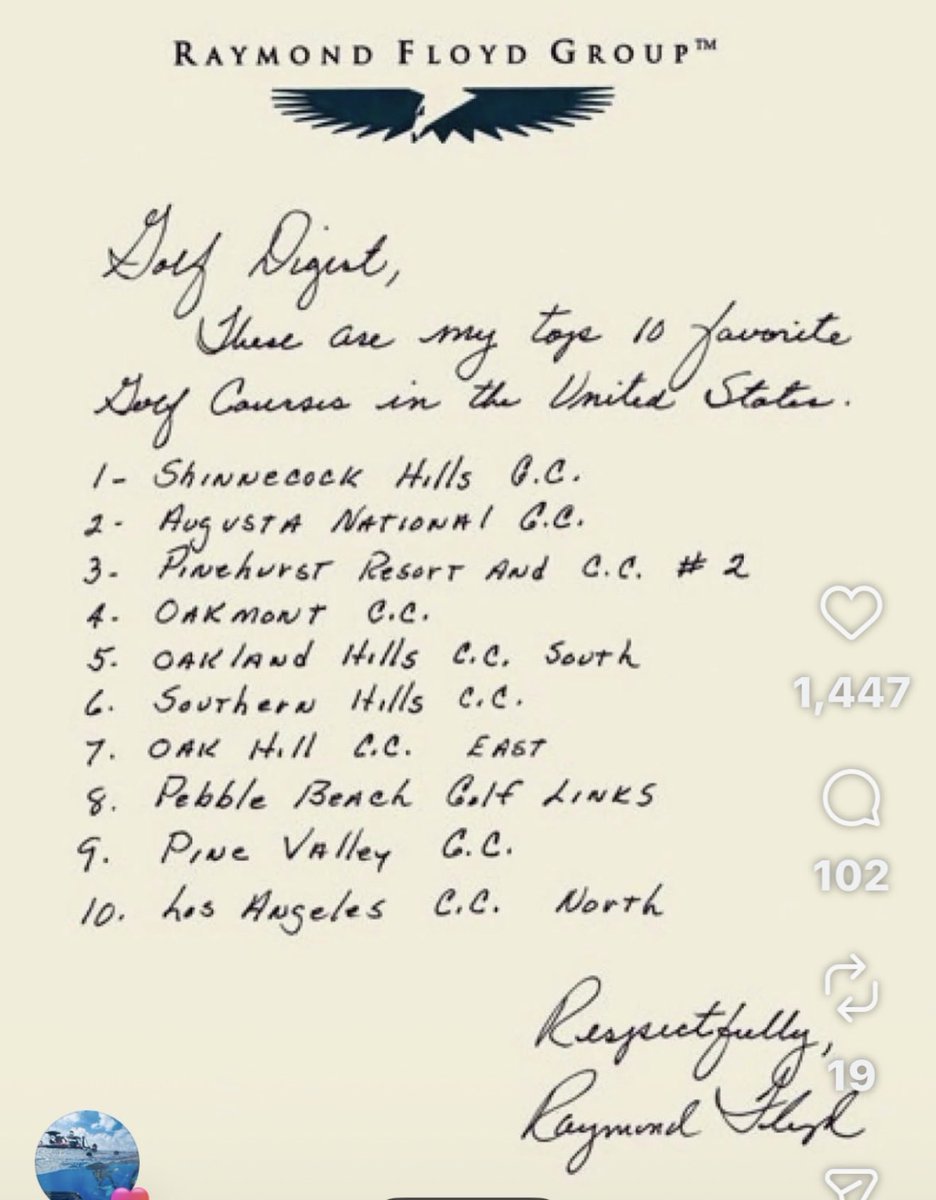 RAYMOND FLOYD GROUP™
Golf Digest,
These are my tops 10 favorite
Golf Courses in the United States.
1- Shinnecock Hills G.C.
2- Augusta National G.C.
3- Pinehurst Resort And C.C. # 2
4- Oakmont C.C.
5. Oakland Hills C.C. South
6. Southern Hills C.C.
7. Oak Hill C.C. East
8. Pebble Beach Golf Links
9. Pine Valley G.C.
10. Los Angeles C.C. North
Respectfully,
Raymond Floyd
1,447
102
19